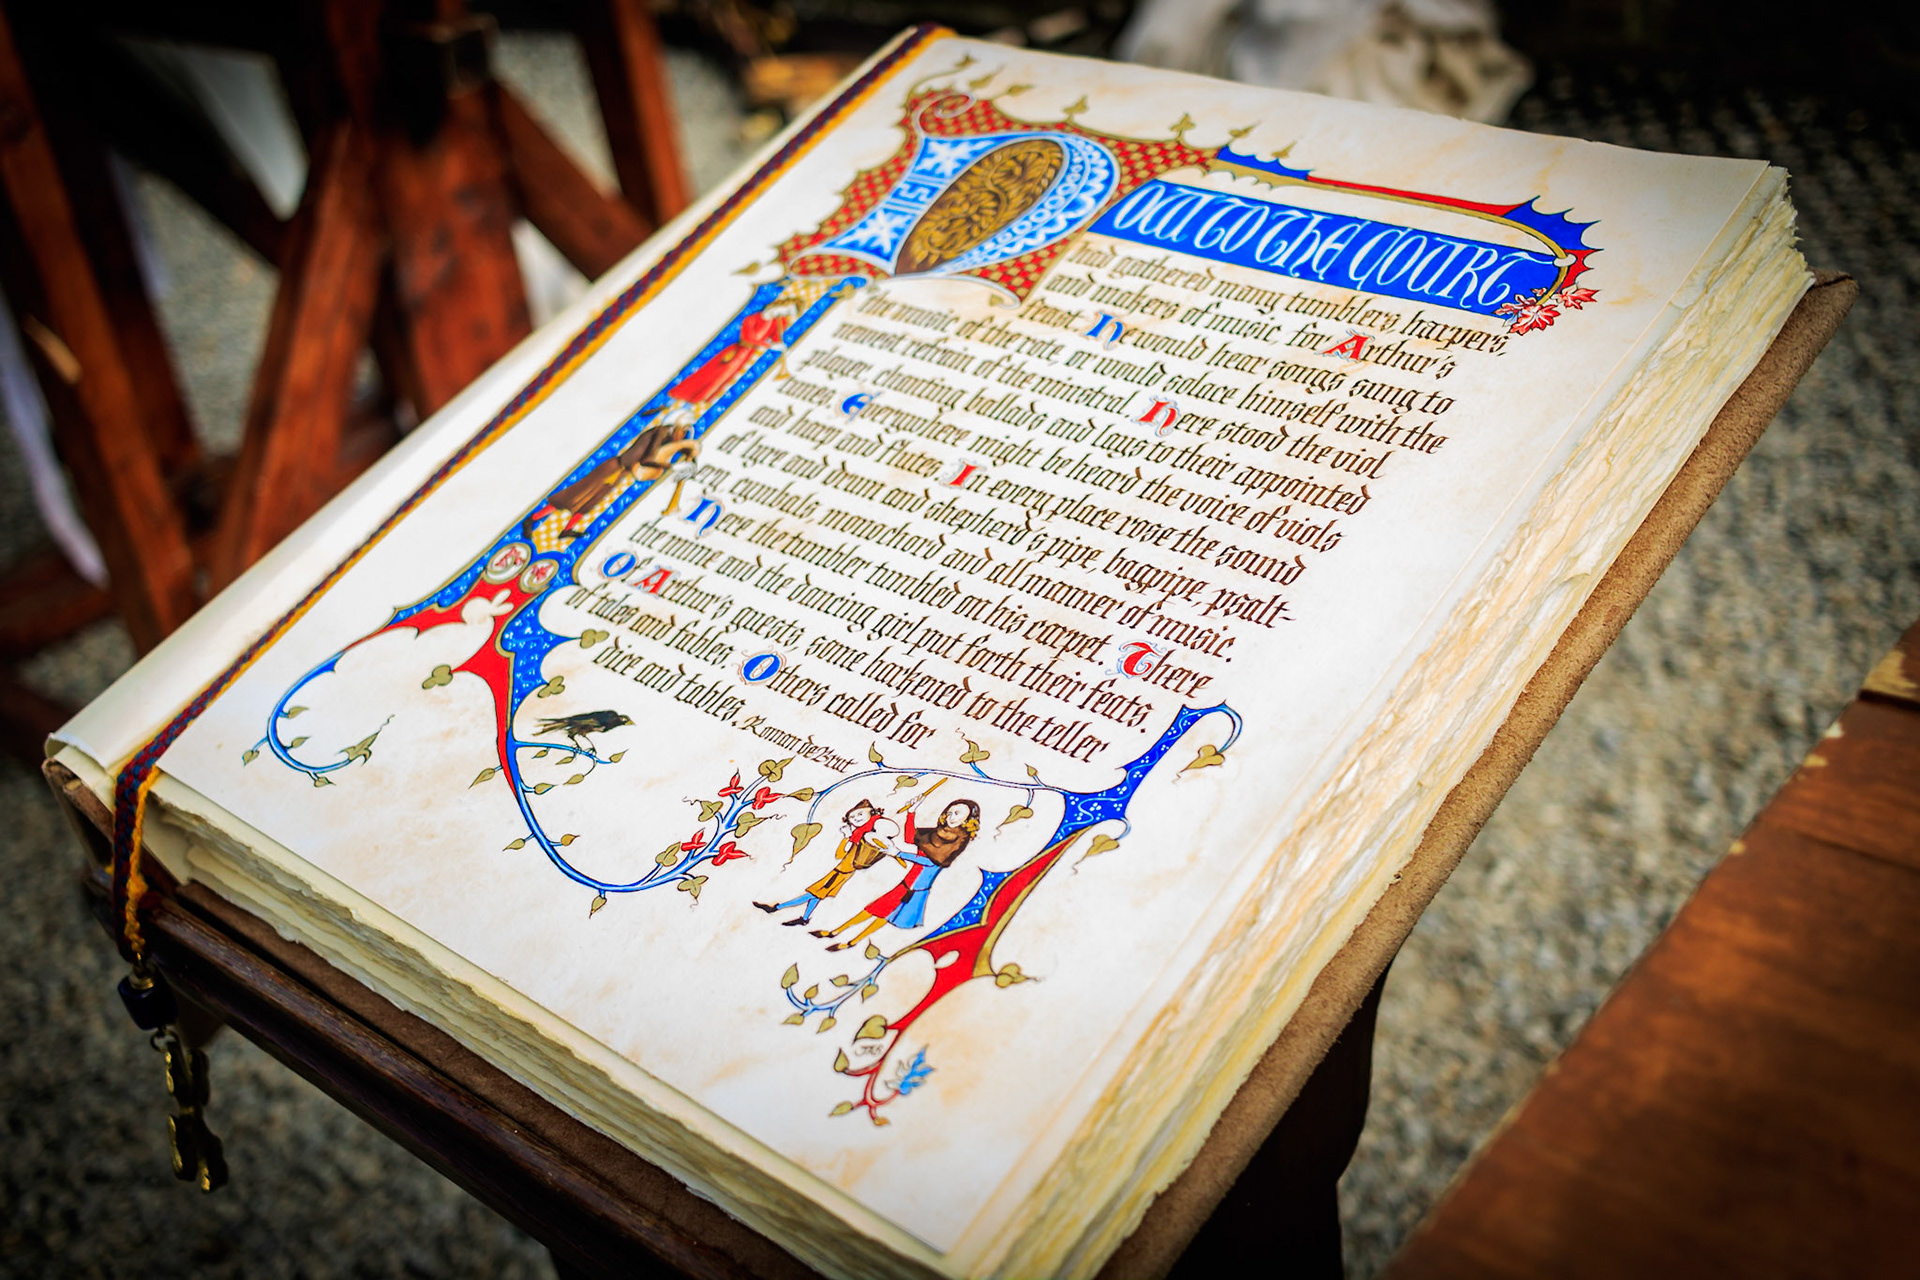 NOW TO THE COURT
had gathered many tumblers, harpers,
and makers of music, for Arthur's
feast. He would hear songs sung to
the music of the rote, or would solace himself with the
newest refrain of the minstrel. Here stood the viol
player, chanting ballads and lays to their appointed
tunes. Everywhere might be heard the voice of viols
and harp and flutes. In every place rose the sound
of lyre and drum and shepherd's pipe, bagpipe, psalt-
ery, cymbals, monochord and all manner of music.
Here the tumbler tumbled on his carpet. There
the mime and the dancing girl put forth their feats.
Of Arthur's guests, some harkened to the teller
of tales and fables. Others called for
dice and tables. Roman de Brut